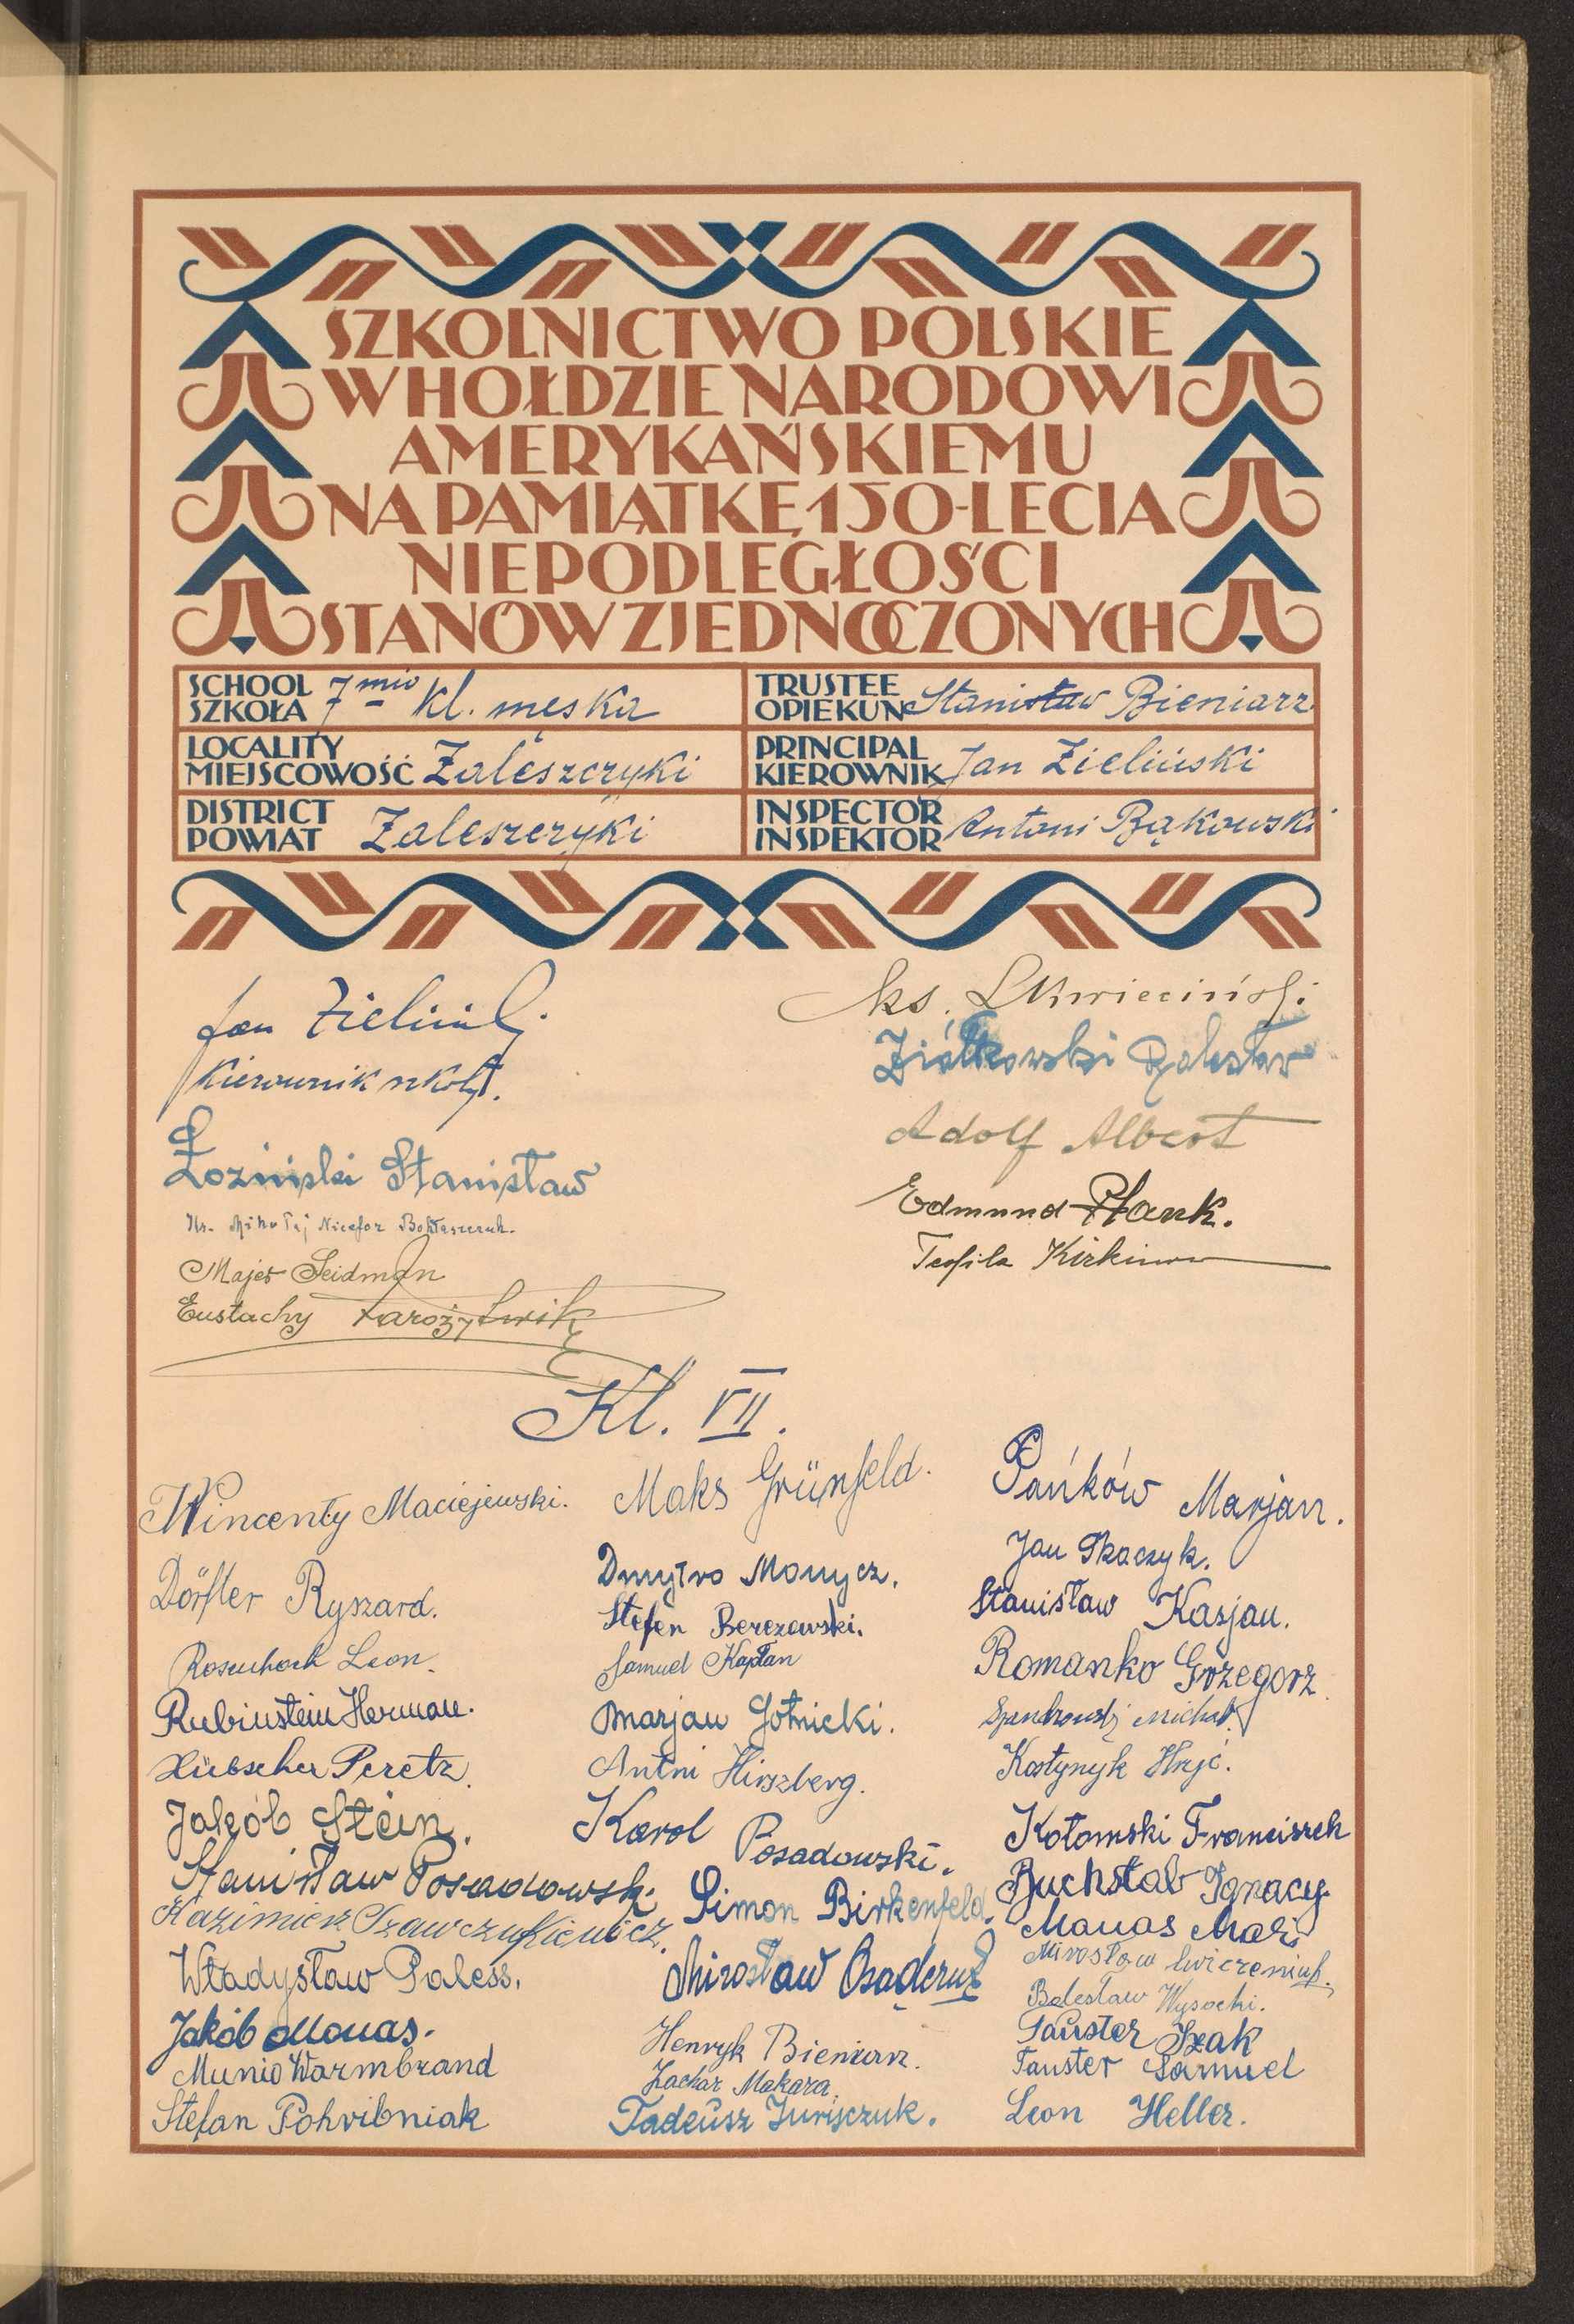 SZKOLNICTWO POLSKIE
W HOŁDZIE NARODOWI
AMERYKAŃSKIEMU
NA PAMIĄTKĘ 150-LECIA
NIEPODLEGŁOŚCI
STANÓW ZJEDNOCZONYCH
SCHOOL
SZKOŁA 7mio kl. męska
TRUSTEE
OPIEKUN Stanisław Bieniarz
LOCALITY
MIEJSCOWOŚĆ Zaleszczyki
PRINCIPAL
KIEROWNIK Jan Zieliński
DISTRICT
POWIAT Zaleszczyki
INSPECTOR
INSPEKTOR Antoni Bąkowski
Jan Zieliński
kierownik szkoły.
Łoziński Stanisław
Ks. Mikołaj Nicefor
Majer Seidman
Eustachy
Ks. L Kwieciński
Ziółkowski Bolesław
Adolf Albert
Edmund Plank.
Teofila
Kl. VII.
Wincenty Maciejewski.
Dörfler Ryszard.
Leon.
Rubinstein Herman.
Hübscher Peretz.
Jakób Stein.
Stanisław Posadowski
Kazimierz Szawczukiewicz.
Władysław Paless.
Jakób Monas.
Munio Warmbrand
Stefan Pohribniak
Maks Grünfeld.
Dmytro Monycz.
Stefen Berezowski.
Samuel Kapłan
Marjan Gotnicki.
Antni Hirszberg.
Karol Posadowski.
Simon Birkenfeld.
Mirosław Osadczuk
Henryk Bieniarz.
Zachar Makara.
Tadeusz Juriiczuk.
Pańków Marjan.
Jan Tkaczyk.
Stanisław Kasjan.
Romanko Grzegorz.
Michał.
Kostynyk Hryć.
Kotomski Franciszek
Buchstab Ignacy
Manas
Mirosław
Bolesław Wysocki.
Tauster Izak
Tauster Samuel
Leon Heller.